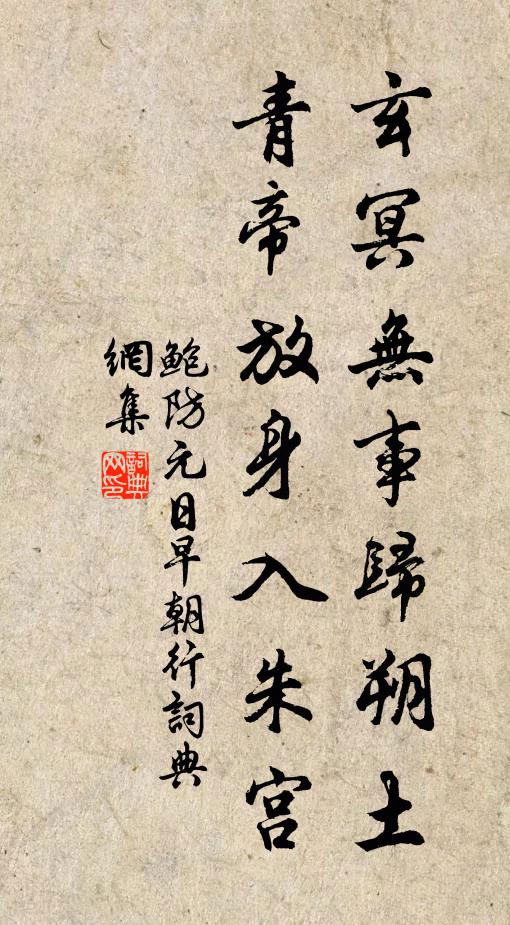 玄冥無事歸朔土
青帝放身入朱宮
鮑防元日早朝行詞典
網集
詞典網印